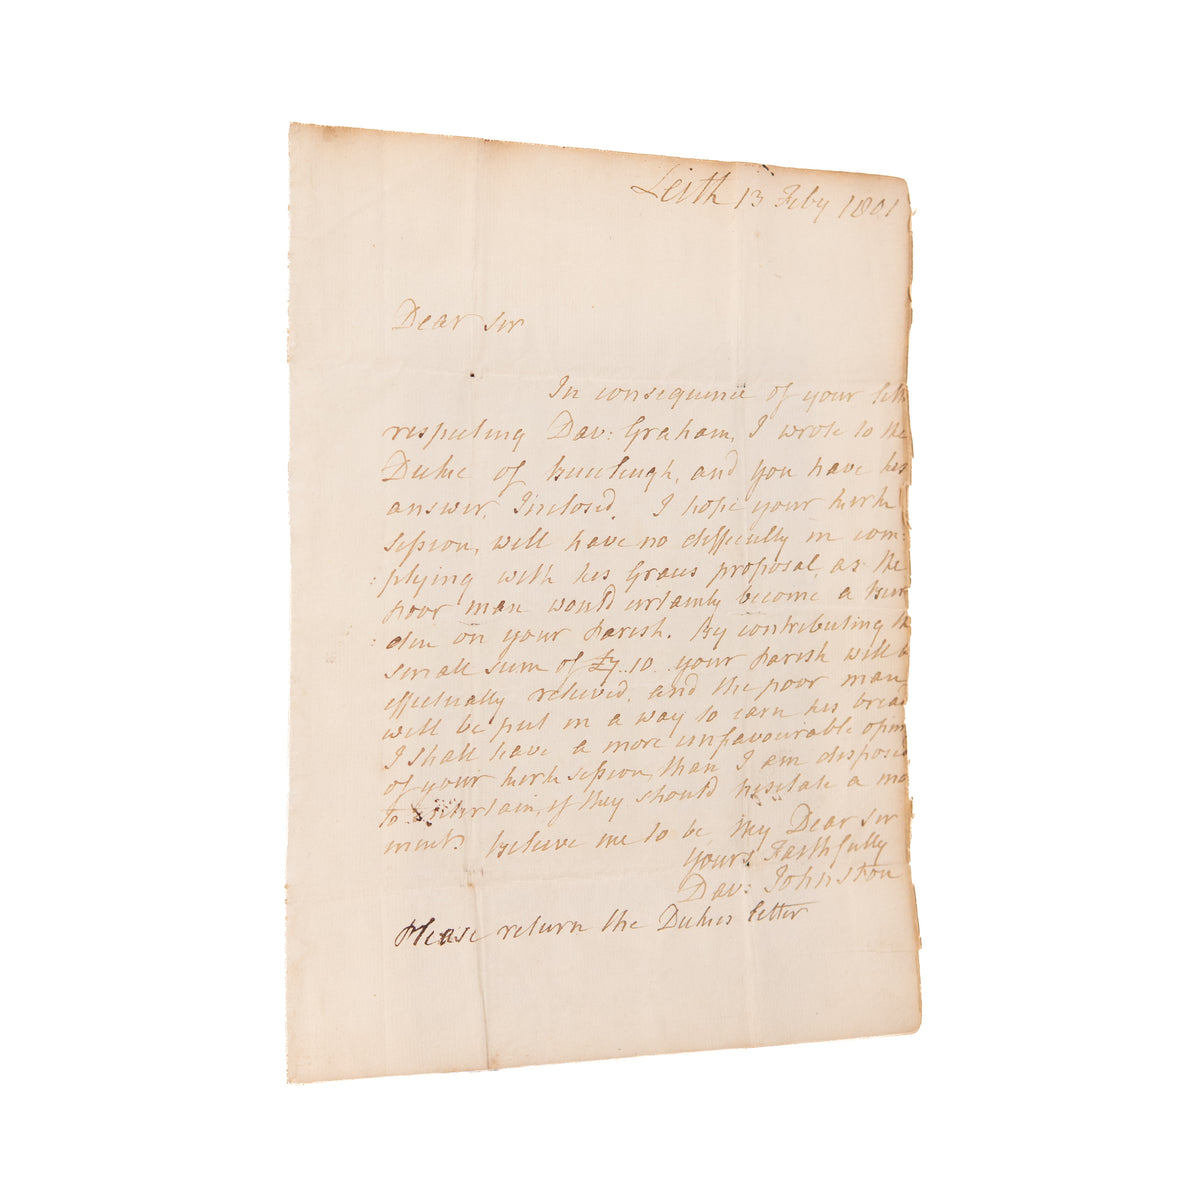 Leith 13 Feby 1801
Dear Sir
In consequence of your lett
respecting Dav: Graham, I wrote to the
Duke of Buccleugh, and you have his
answer Inclosed. I hope your kirk
session, will have no difficulty in com-
: plying with his Graces proposal, as the
poor man would certainly become a Bur
: den on your Parish. By contributing the
small sum of £7..10 your Parish will be
effectually relieved, and the poor man
will be put in a way to earn his bread
I shall have a more unfavourable opini
of your kirk session, than I am disposed
to entertain, if they should hesitate a mo
ment. Believe me to be My Dear Sir
Yours Faithfully
Dav: Johnston
Please return the Dukes letter